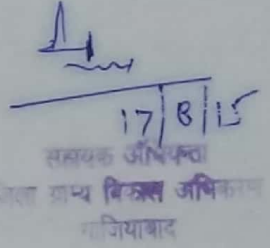 17/8/15
सहायक अभियन्ता
जिला ग्राम्य विकास अभिकरण
गाजियाबाद